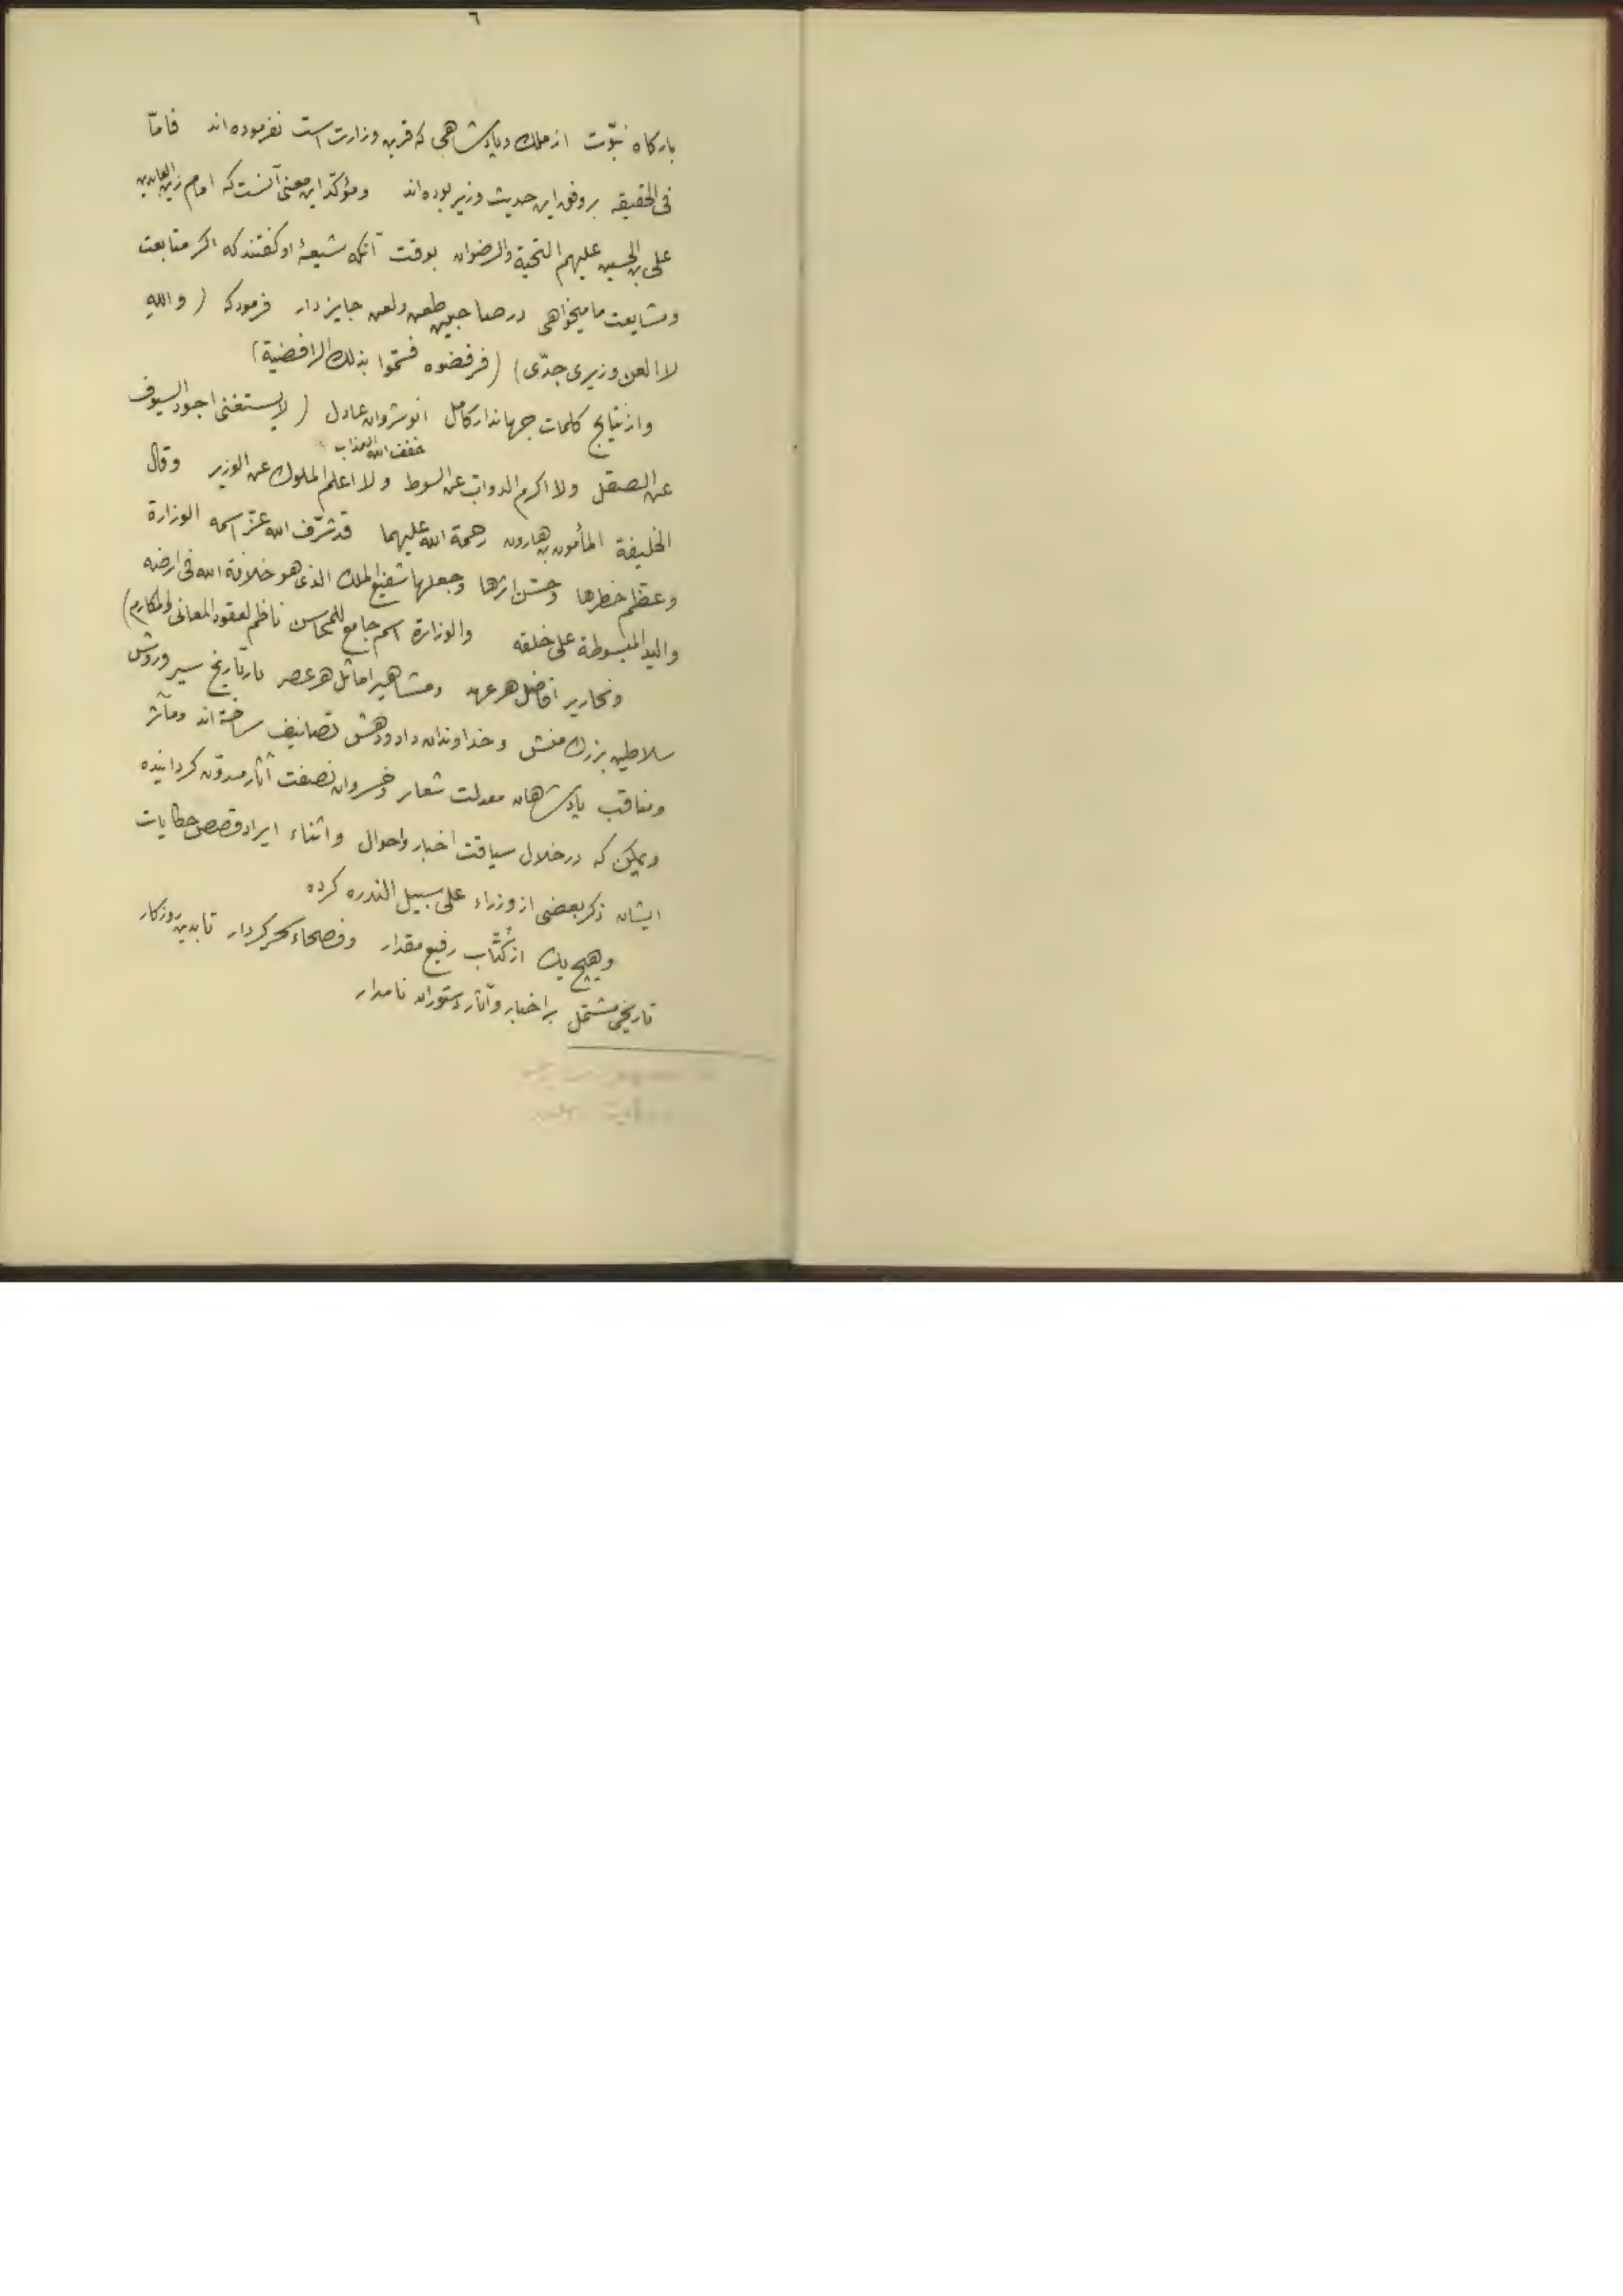 ٦
بارکاه نبوّت از ملک و پادشاهی که قرین وزارت است نفرموده‌اند فامّا
فی الحقیقه بر وفق این حدیث وزیر بوده‌اند و مؤکّد این معنی آنست که امام زین العابدین
علی بن الحسین علیهم التحیة والرضوان بوقت آنکه شیعهٔ او کفتند که اکر متابعت
و مشایعت ما میخواهی در صاحبین طعن و لعن جایز دار فرمود که (والله
لا العن وزیری جدّی) (فرفضوه فسمّوا بذلک الرافضیة)
و از نتایج کلمات جهاندار کامل انوشروان عادل (لا یستغنی اجود السیوف
خفف الله العذاب
عن الصقل ولا اکرم الدواب عن السوط ولا اعلم الملوک عن الوزیر وقال
الخلیفة المأمون بن هارون رحمة الله علیهما قد شرّف الله عزّ اسمه الوزارة
وعظّم خطرها وحسّن اثرها وجعلها شفیع الملک الذی هو خلافة الله فی ارضه
والید المبسوطة علی خلقه والوزارة اسم جامع للمحاسن ناظم لعقود المعانی والمکارم)
و نحاریر افاضل هر عهد و مشاهیر اماثل هر عصر در تاریخ سیر و روش
سلاطین بزرک منش و خداوندان داد و دهش تصانیف ساخته‌اند و مآثر
و مناقب پادشاهان معدلت شعار و خسروان نصفت آثار مدوّن کردانیده
و یمکن که در خلال سیاقت اخبار و احوال و اثناء ایراد قصص و حکایات
ایشان ذکر بعضی از وزراء علی سبیل الندره کرده
و هیچ یک از کُتّاب رفیع مقدار و فصحاء سحر کردار تا بدین روزکار
تاریخی مشتمل بر اخبار و آثار دستوران نامدار